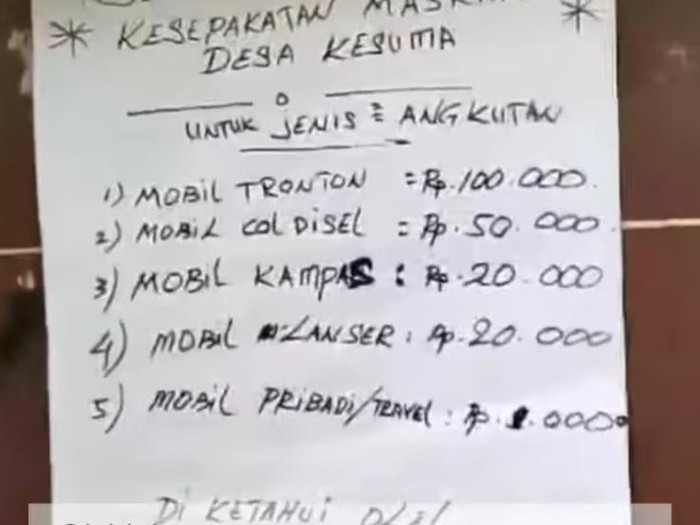 * KESEPAKATAN *
DESA KESUMA
UNTUK JENIS² ANGKUTAN
1) MOBIL TRONTON = Rp. 100.000.
2) MOBIL COLDISEL = Rp. 50.000
3) MOBIL KAMPAS : Rp. 20.000
4) MOBIL LANSER : Rp. 20.000
5) MOBIL PRIBADI/TRAVEL : Rp.
DI KETAHUI OLEH